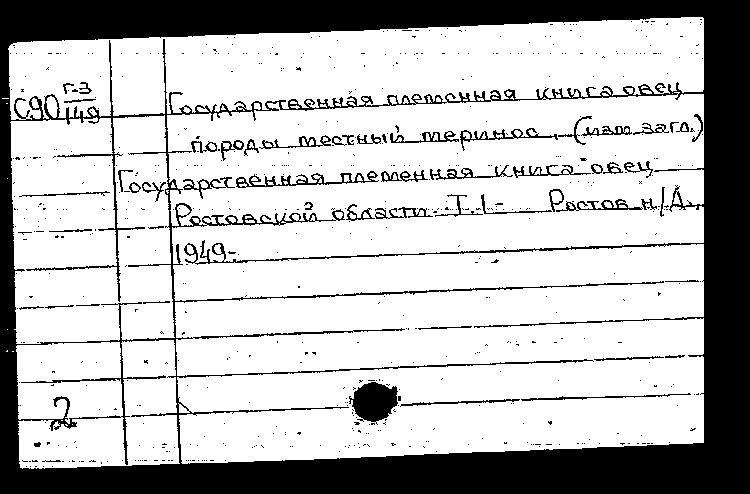 С90 Г-3/149 Государственная племенная книга овец
породы местный меринос. (изм. загл.)
Государственная племенная книга овец
Ростовской области. Т. 1- Ростов н/Д.,
1949-
2